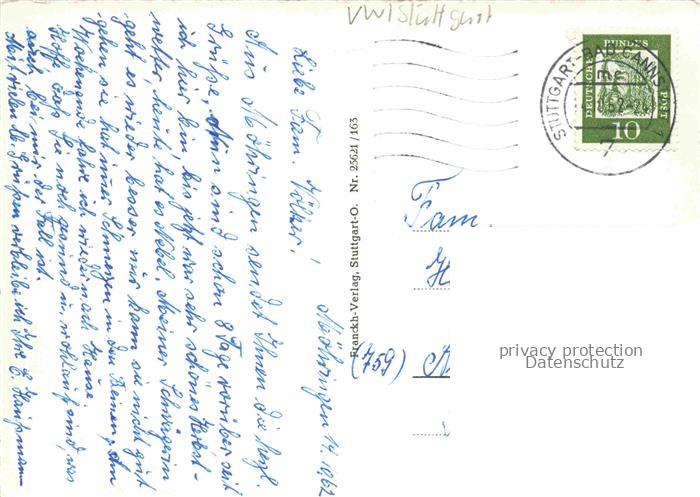 VW Stuttgart
Möhringen 14.10.62
Liebe Fam. Völker!
Aus Möhringen sendet Ihnen die herzl.
Grüße, Nun sind schon 8 Tage vorüber seit
ich hier bin, bis jetzt war sehr schönes Herbst-
wetter, heute hat es Nebel. Meiner Schwägerin
geht es wieder besser nur kann sie nicht gut
gehen sie hat immer Schmerzen in den Beinen, Am
Wochenende fahre ich wieder nach Hause.
Hoffe daß Sie noch gesund u. wohlauf sind, was
auch bei mir der Fall ist.
Mit vielen lb. Grüßen verbleibe ich Ihre E. Kaufmann
Franckh-Verlag, Stuttgart-O. Nr. 25621/163
STUTTGART-BAD CANNS
62-24
DEUTSCHE BUNDESPOST
10
Fam.
H
(759)
privacy protection
Datenschutz